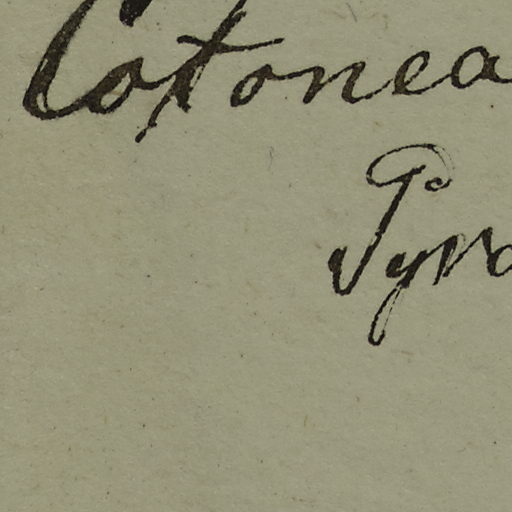 Cotonea
Pyra